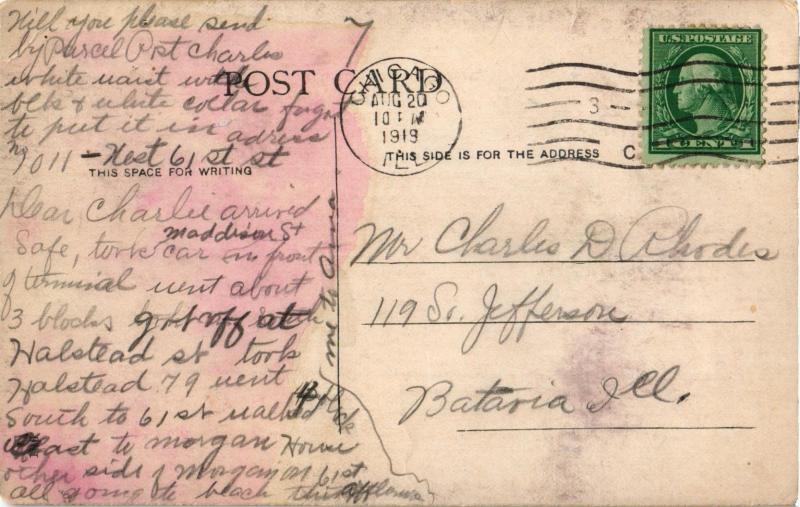 Will you please send
by Parcel Post Charles
white waist with
blk & white collar forgot
to put it in adress
1011 - West 61st st
POST CARD
THIS SPACE FOR WRITING
Dear Charlie arrived
Safe, took maddison St car in front
of terminal went about
3 blocks got off at
Halstead st took
Halstead 79 went
South to 61st walked 4 block
East to morgan House
other side of Morgan on 61st
all going to beach this
CHICAGO
AUG 20
10 PM
1919
ILL
3
U.S. POSTAGE
1 CENT 1
THIS SIDE IS FOR THE ADDRESS
Mr Charles D Rhodes
119 So. Jefferson
Batavia Ill.